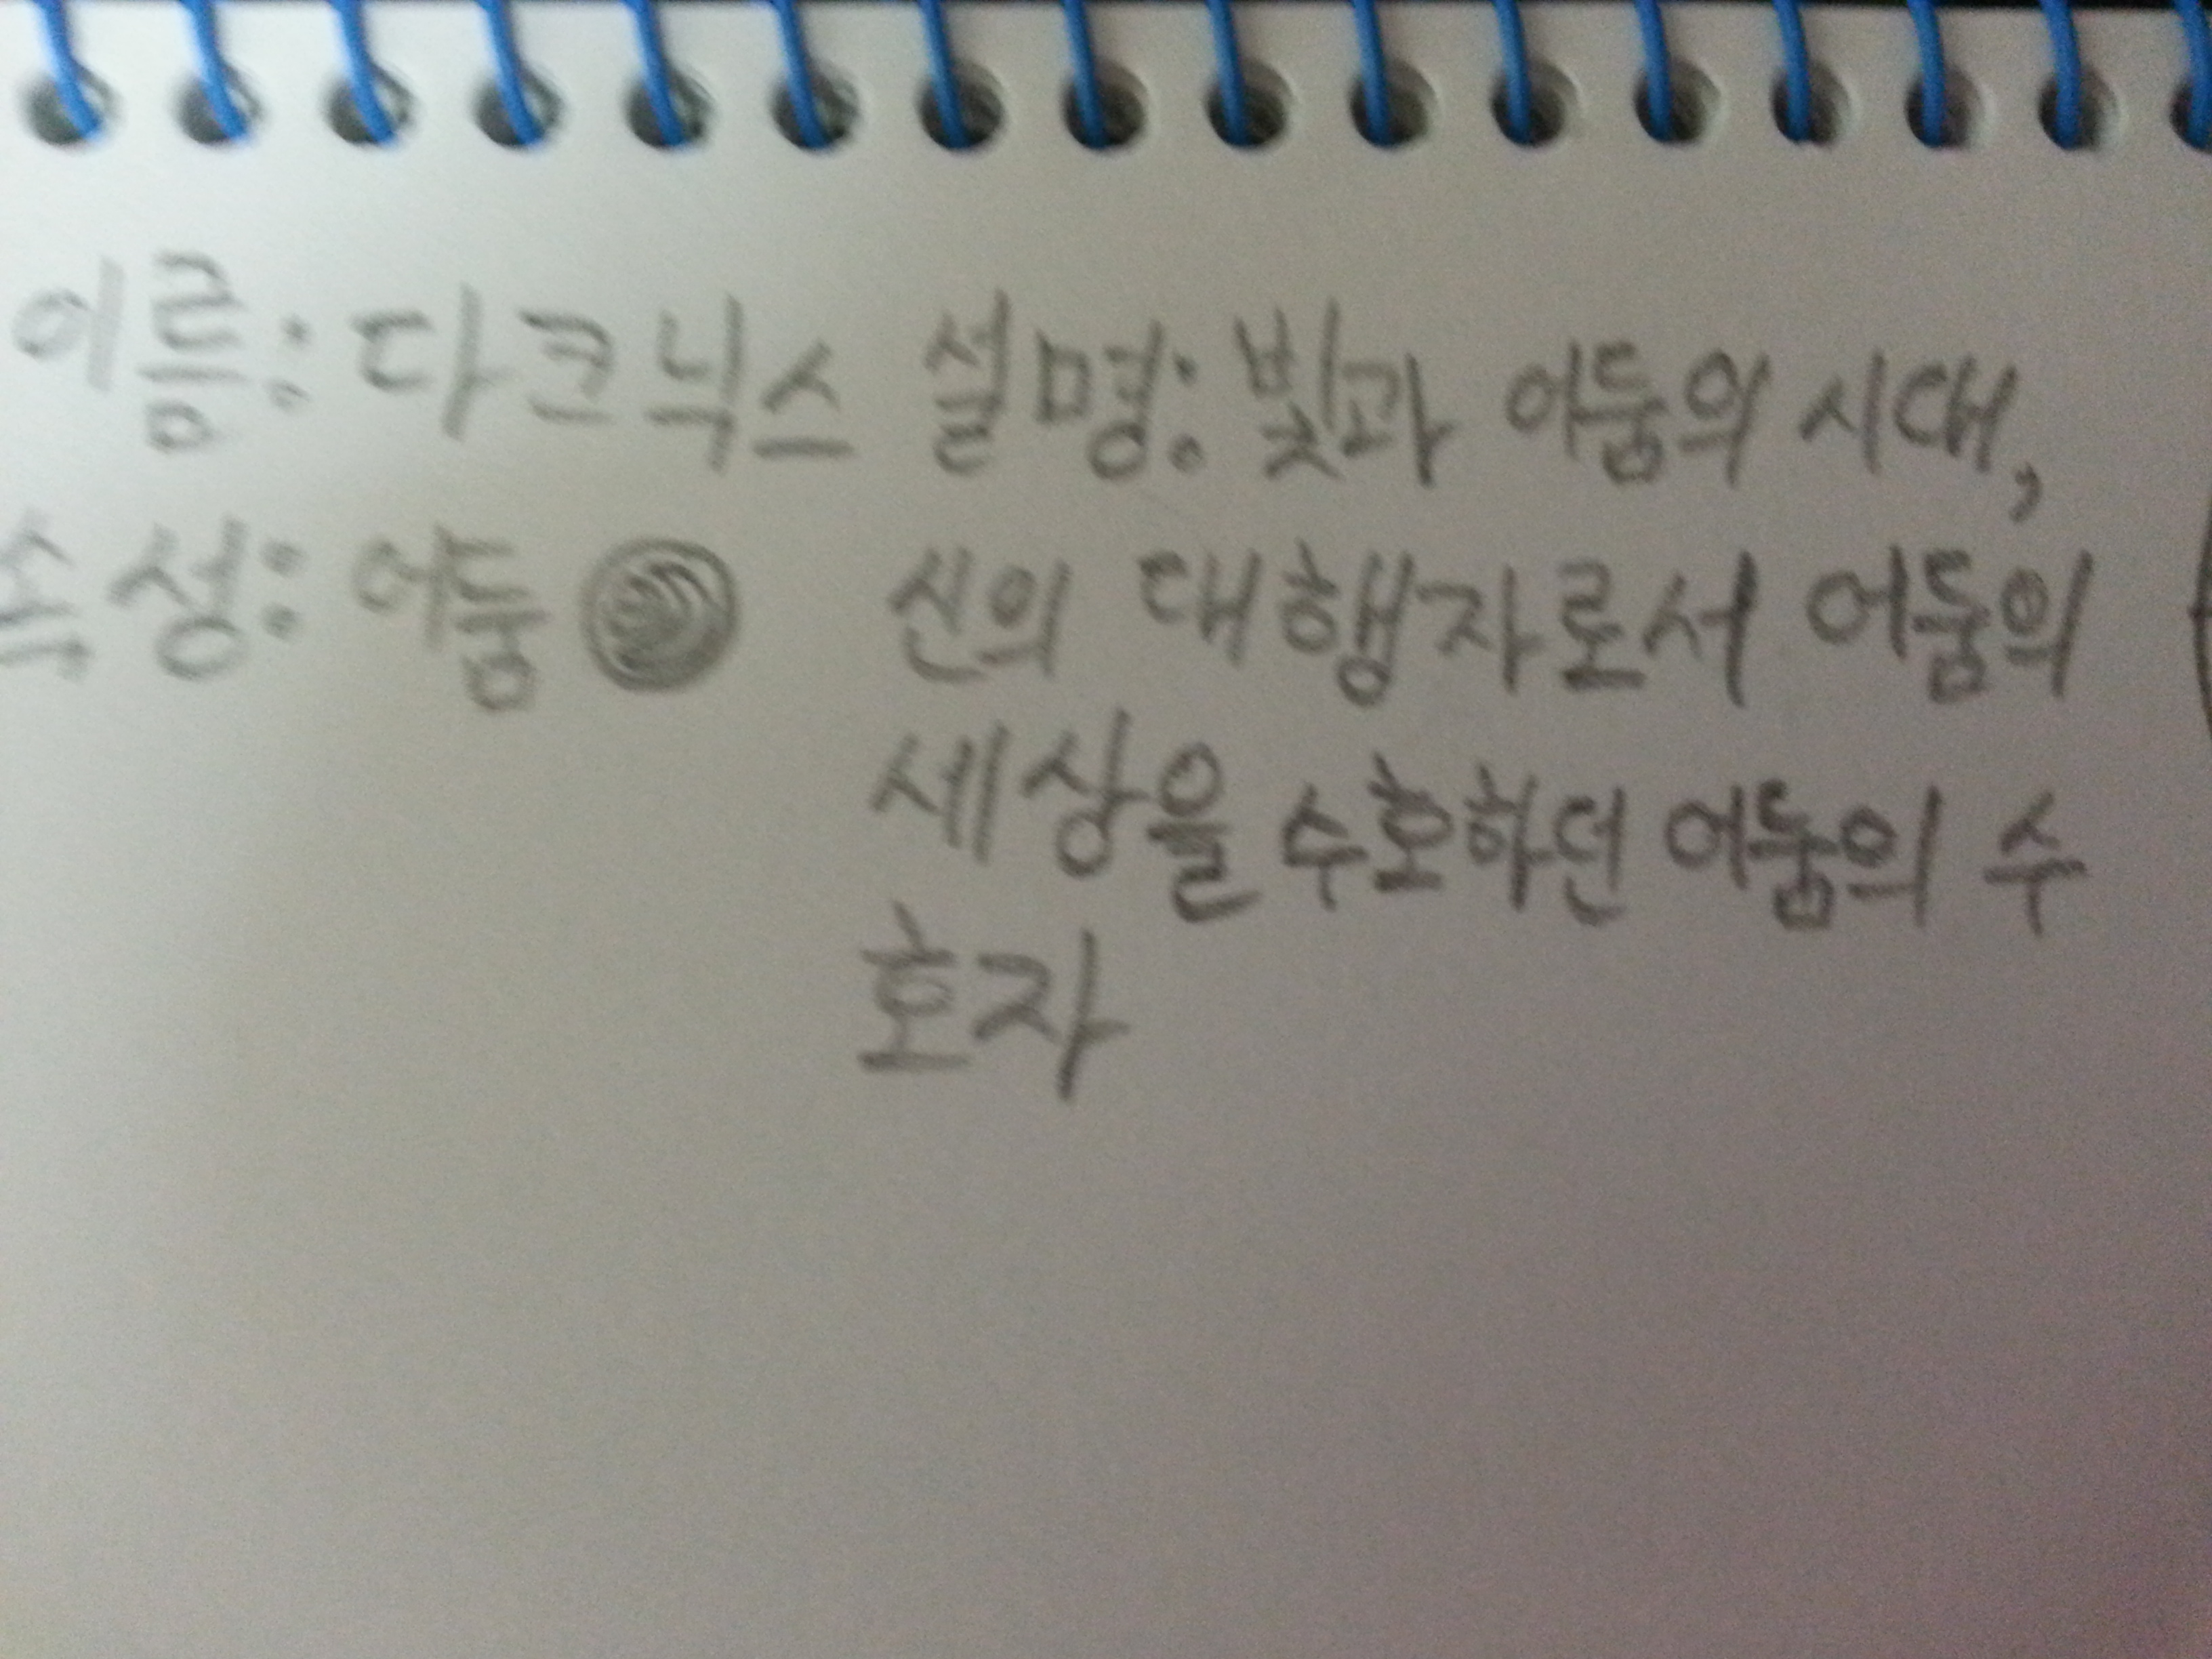 이름: 다크닉스 설명: 빛과 어둠의 시대,
속성: 어둠 신의 대행자로서 어둠의
세상을 수호하던 어둠의 수
호자